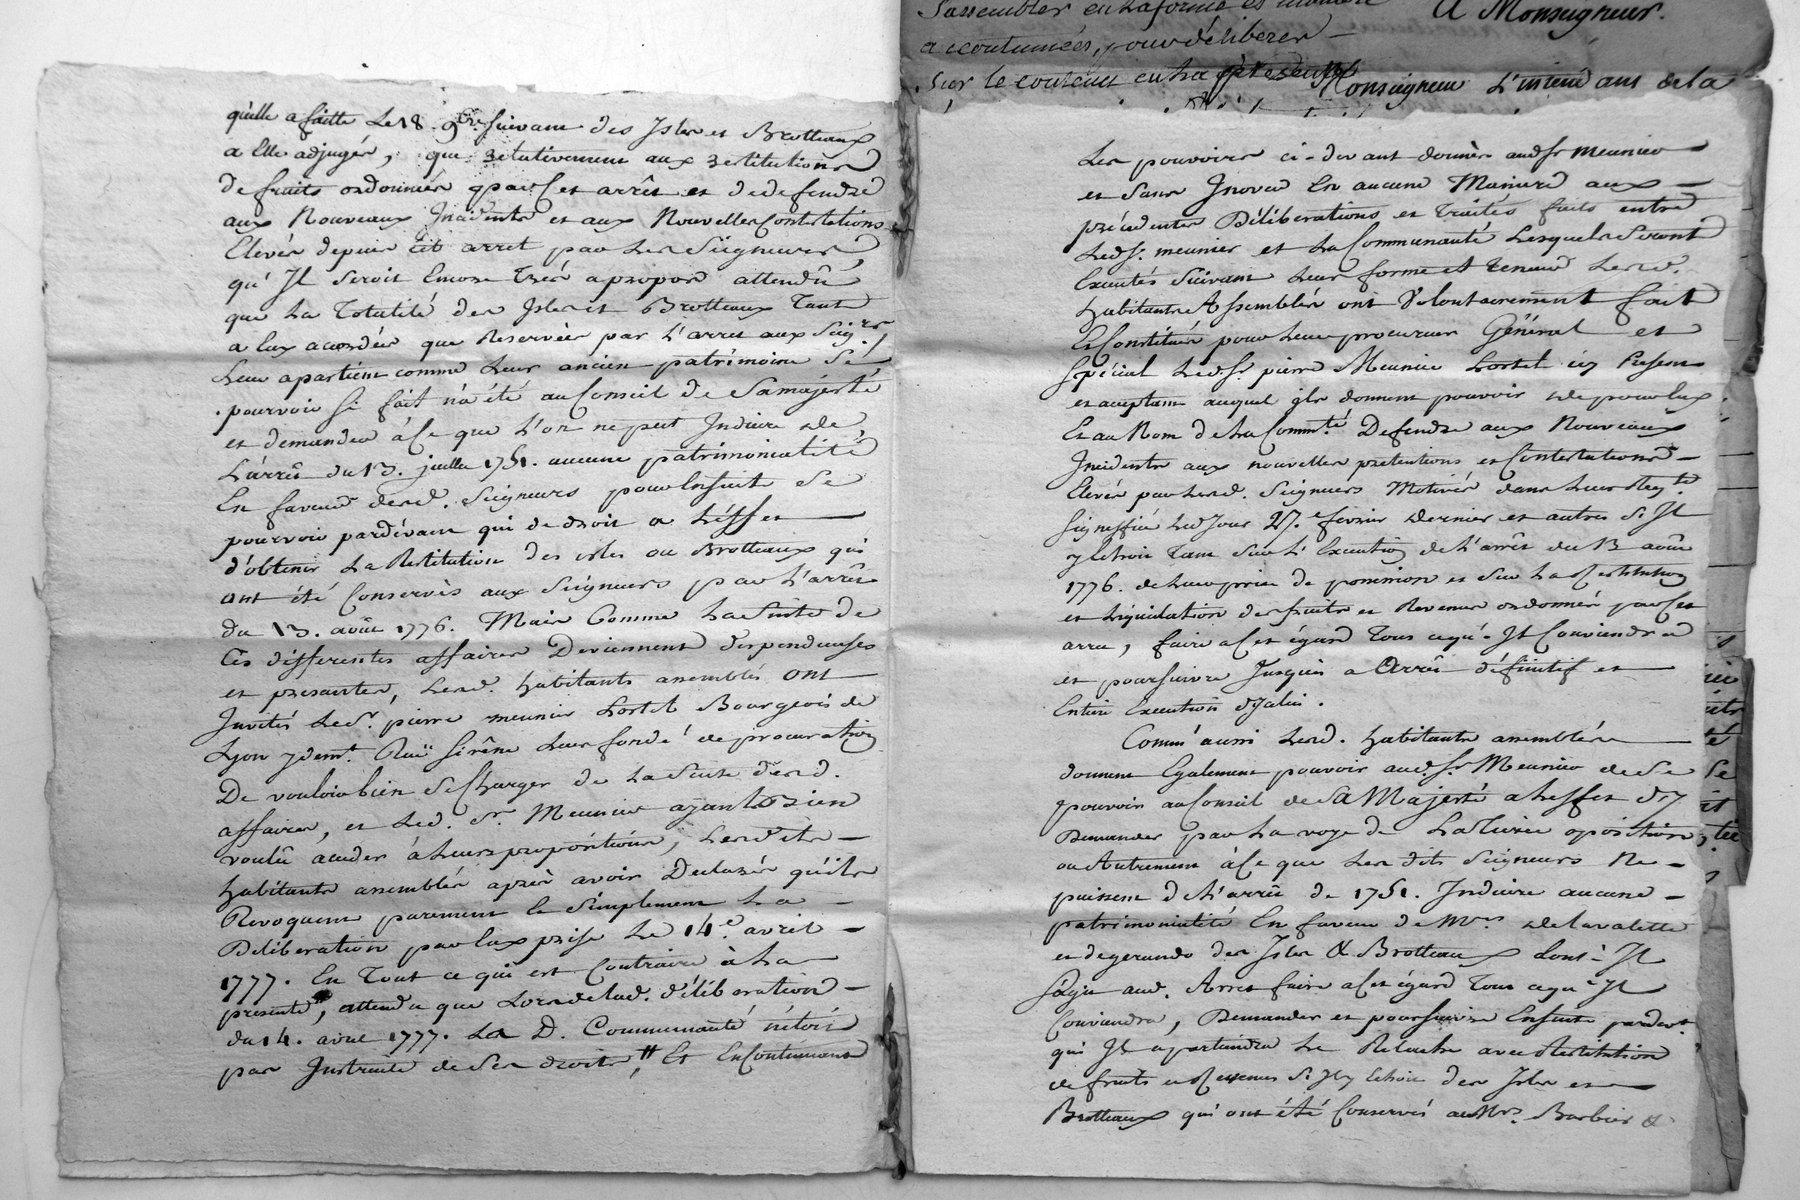 Sassembler en la forme et maniere
accoutumées, pour délibérer
sur le contenu en la presente
A Monseigneur.
Monseigneur L'intendant de la
qu'elle a faitte Le 18. 9bre suivant des Isles et Brotteaux
a Elle adjugés, que relativement aux restitutions
de fruits ordonnées par Cet arrêt et de deffendre
aux Nouveaux Incidents et aux Nouvelles Contestations
Elevés depuis cet arret par Les Seigneurs,
qu'Il seroit Encore tres apropos attendû
que La Totalité des Isles et Brotteaux Tant
a Eux accordés que Reservées par L'arret aux Seigrs.
Leur apartient comme Leur ancien patrimoine se
pourvoir si fait n'a été au Conseil de Sa majesté
et demander à Ce que L'on ne peut Induire de
L'arrêt du 13. juillet 1751. aucune patrimonialité
En faveur desd. Seigneurs pour Ensuite se
pourvoir pardevant qui de droit a L'effet
d'obtenir La Restitution des isles ou Brotteaux qui
ont été Conservés aux Seigneurs par L'arrêt
du 13. août 1776. Mais Comme La suite de
Ces differentes affaires Deviennent dispendieuses
et pressantes, Lesd. habitants assemblés ont
Invités Le Sr. pierre meunier Lortet Bourgeois de
Lyon y demt. Ruë Sirêne Leur fondé de procuration
De vouloir bien se Charger de La suite desd.
affaires, et Led. Sr. Meunier ayant bien
voulû acceder à Leurs propositions, Lesdits
habitants assemblés après avoir Declarés qu'ils
Revoquent purement et simplement La
Déliberation par Eux prise Le 14e. avril
1777. En Tout ce qui est Contraire à La
presente, attendu que Lors de Lad. déliberation
du 14. avril 1777. La D. Communauté n'étoit
pas Instruite de Ses droits, Et En Continuant
Les pouvoirs ci-devant donnés audSr. Meunier
et sans Inover En aucune Maniere aux
précedentes Déliberations et Traités faits entre
LedSr. meunier et La Communauté Lesquels seront
Executés suivant Leur forme et teneur Lesd.
habitants Assemblés ont Volontairement fait
Et Constitués pour Leur procureur Général et
Spécial LedSr. pierre Meunier Lortet icy Present
et acceptant auquel ils donnent pouvoir de pour Eux
Et au Nom de La Commté. Deffendre aux Nouveaux
Incidents aux nouvelles pretentions et Contestations
Elevés par Lesd. Seigneurs Motivés dans Leur Reqte.
Signiffiée Led Jour 27e. fevrier dernier et autres S'Il
y Echoit Tant sur L'Execution de L'arrêt du 13 août
1776. de Leur prise de possession et sur La Restitution
et Liquidation des fruits et Revenus ordonnés par Cet
arret, faire a Cet égard Tous ce qu'Il Conviendra
et poursuivre Jusqu'a Arrêt définitif et
Entiere Execution d'Icelui.
Comm'aussi Lesd. habitants assemblés
donnent Egalement pouvoir audSr. Meunier de Se
pourvoir au Conseil de SA Majesté a L'effet d'y
Demander par La voye de La Tierce oposition,
ou Autrement à Ce que Lesdits Seigneurs Ne
puissent de L'arrêt de 1751. Induire aucune
patrimonialité En faveur de Mrs. delavalette
et degerando des Isles & Brotteaux dont Il
s'agit aud. Arret faire a Cet égard Tous ce qu'Il
Conviendra, Demander et poursuivre Ensuite pardevt.
qui Il apartiendra Le Relache avec Restitution
de fruits et Revenus S'Il y Echoit des Isles et
Brotteaux qui ont été Conservés aux Mrs. Barbier &